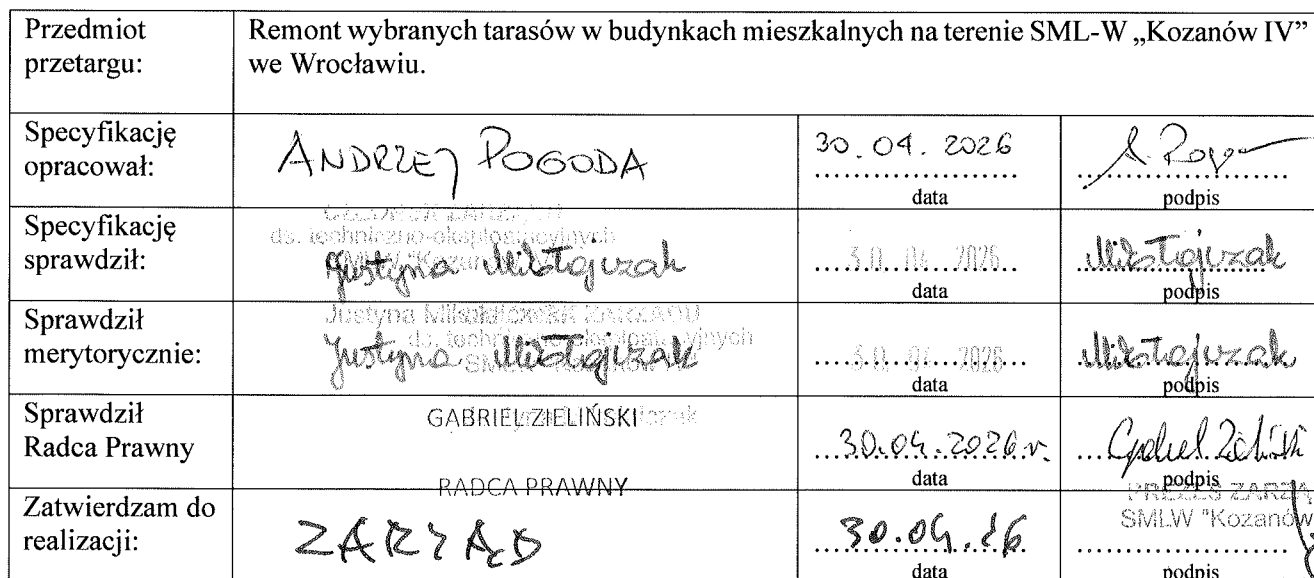 Przedmiot przetargu:
Remont wybranych tarasów w budynkach mieszkalnych na terenie SML-W „Kozanów IV”
we Wrocławiu.
Specyfikację opracował:
ANDRZEJ POGODA
30.04.2026
data
podpis
Specyfikację sprawdził:
CZŁONEK ZARZĄDU
ds. techniczno-eksploatacyjnych
Justyna Mikołajczak
30. 04. 2026
data
Mikołajczak
podpis
Sprawdził merytorycznie:
Justyna Mikołajczak
Justyna Mikołajczak
30. 04. 2026
data
Mikołajczak
podpis
Sprawdził Radca Prawny
GABRIEL ZIELIŃSKI
RADCA PRAWNY
30.04.2026r.
data
podpis
Zatwierdzam do realizacji:
ZARZĄD
30.04.26
data
SMLW "Kozanów
podpis